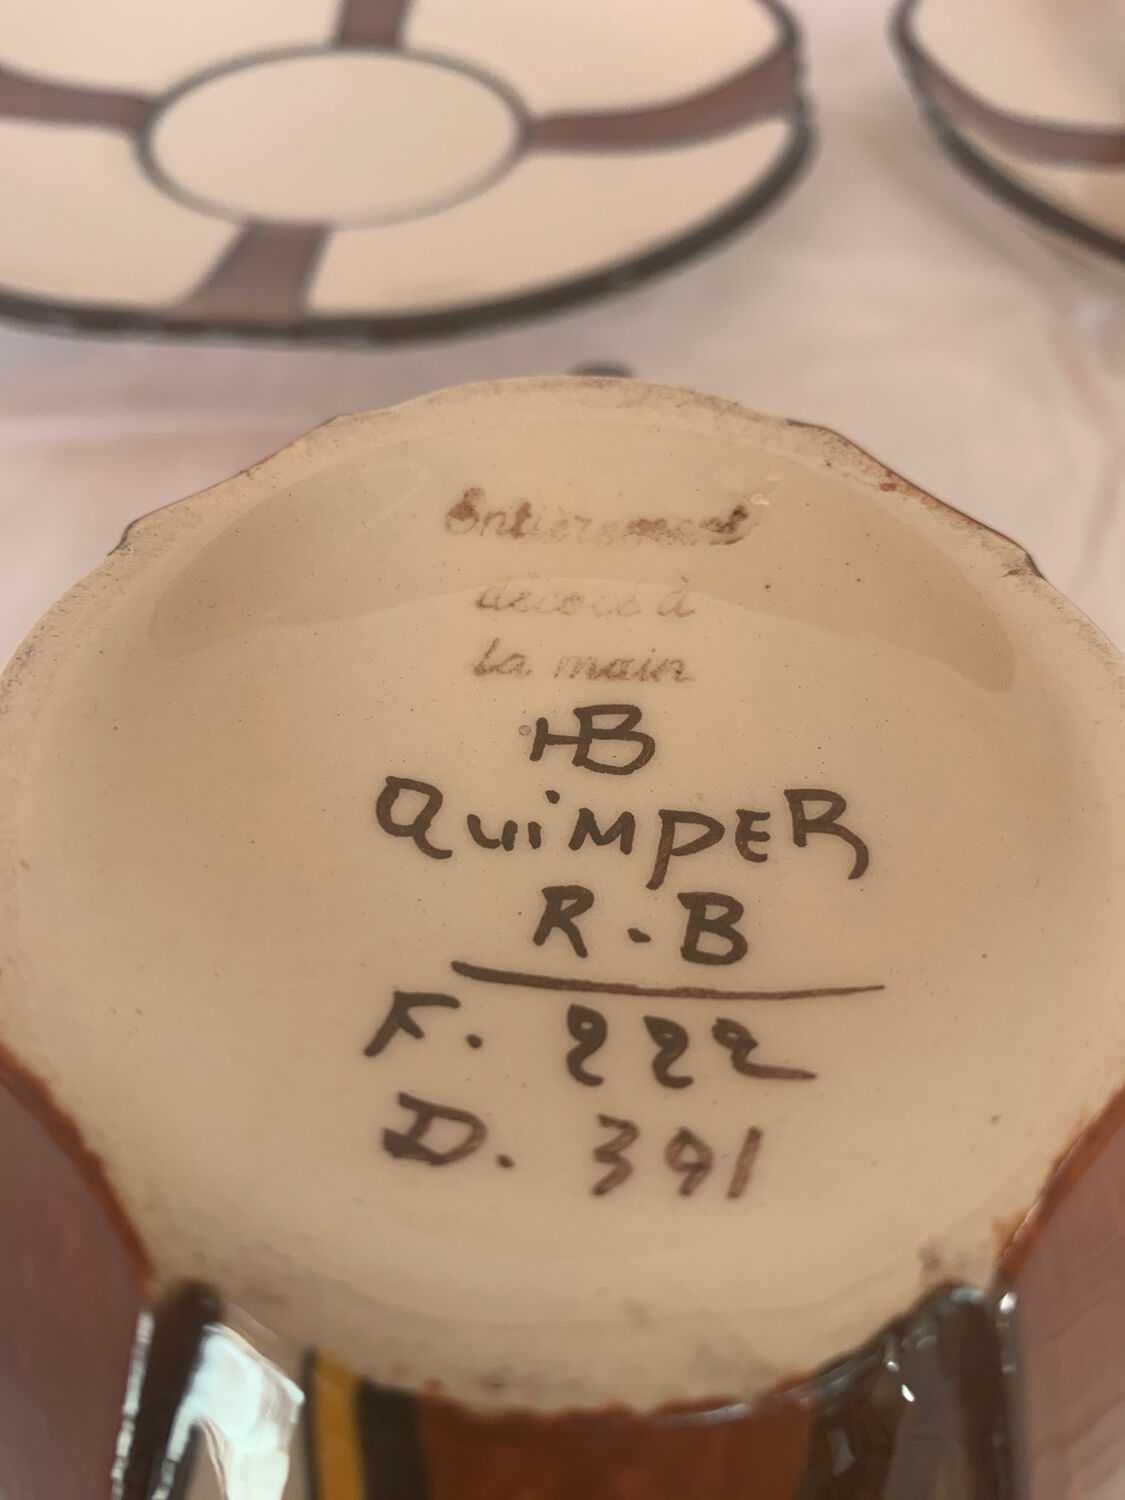 Entièrement
décoré à
La main
HB
QuiMPER
R.B
F. 222
D. 391